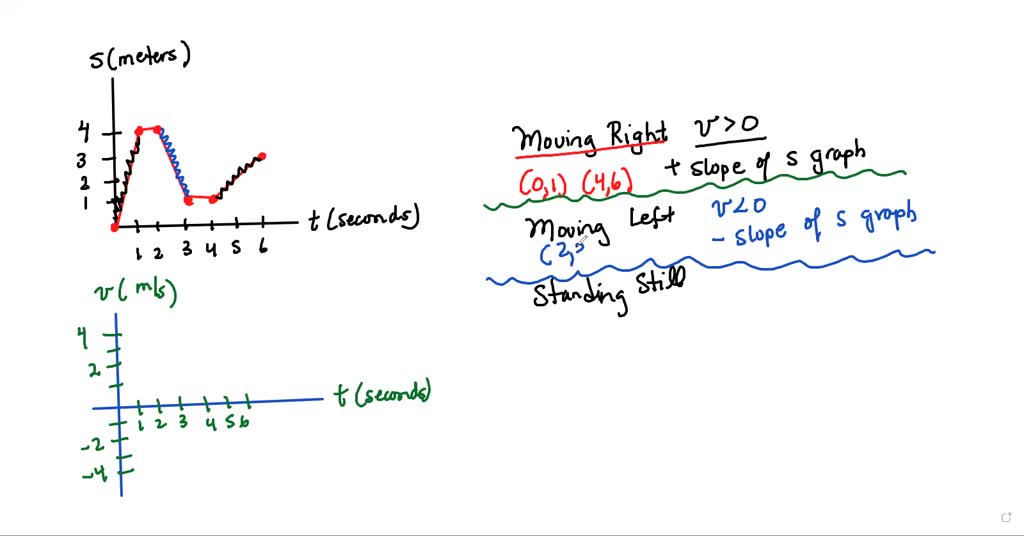 s(meters)
4
3
2
1
t(seconds)
1 2 3 4 5 6
v(m/s)
4
2
t(seconds)
1 2 3 4 5 6
-2
-4
Moving Right v>0
(0,1) (4,6) + slope of s graph
Moving Left v<0
(2,3 - slope of s graph
Standing Still